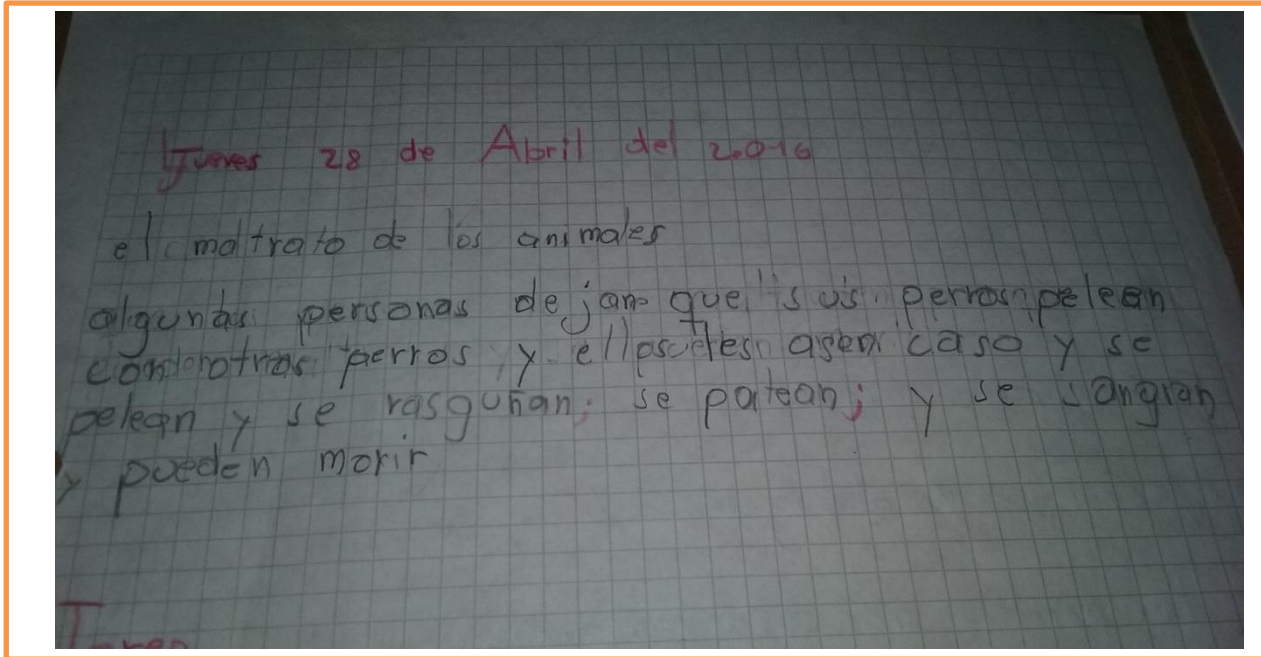 Jueves 28 de Abril del 2.016
el maltrato de los animales
algunas personas dejan que sus perros peleen
con otros perros y ellos les asen caso y se
pelean y se rasguñan; se patean; y se sangran
y pueden morir